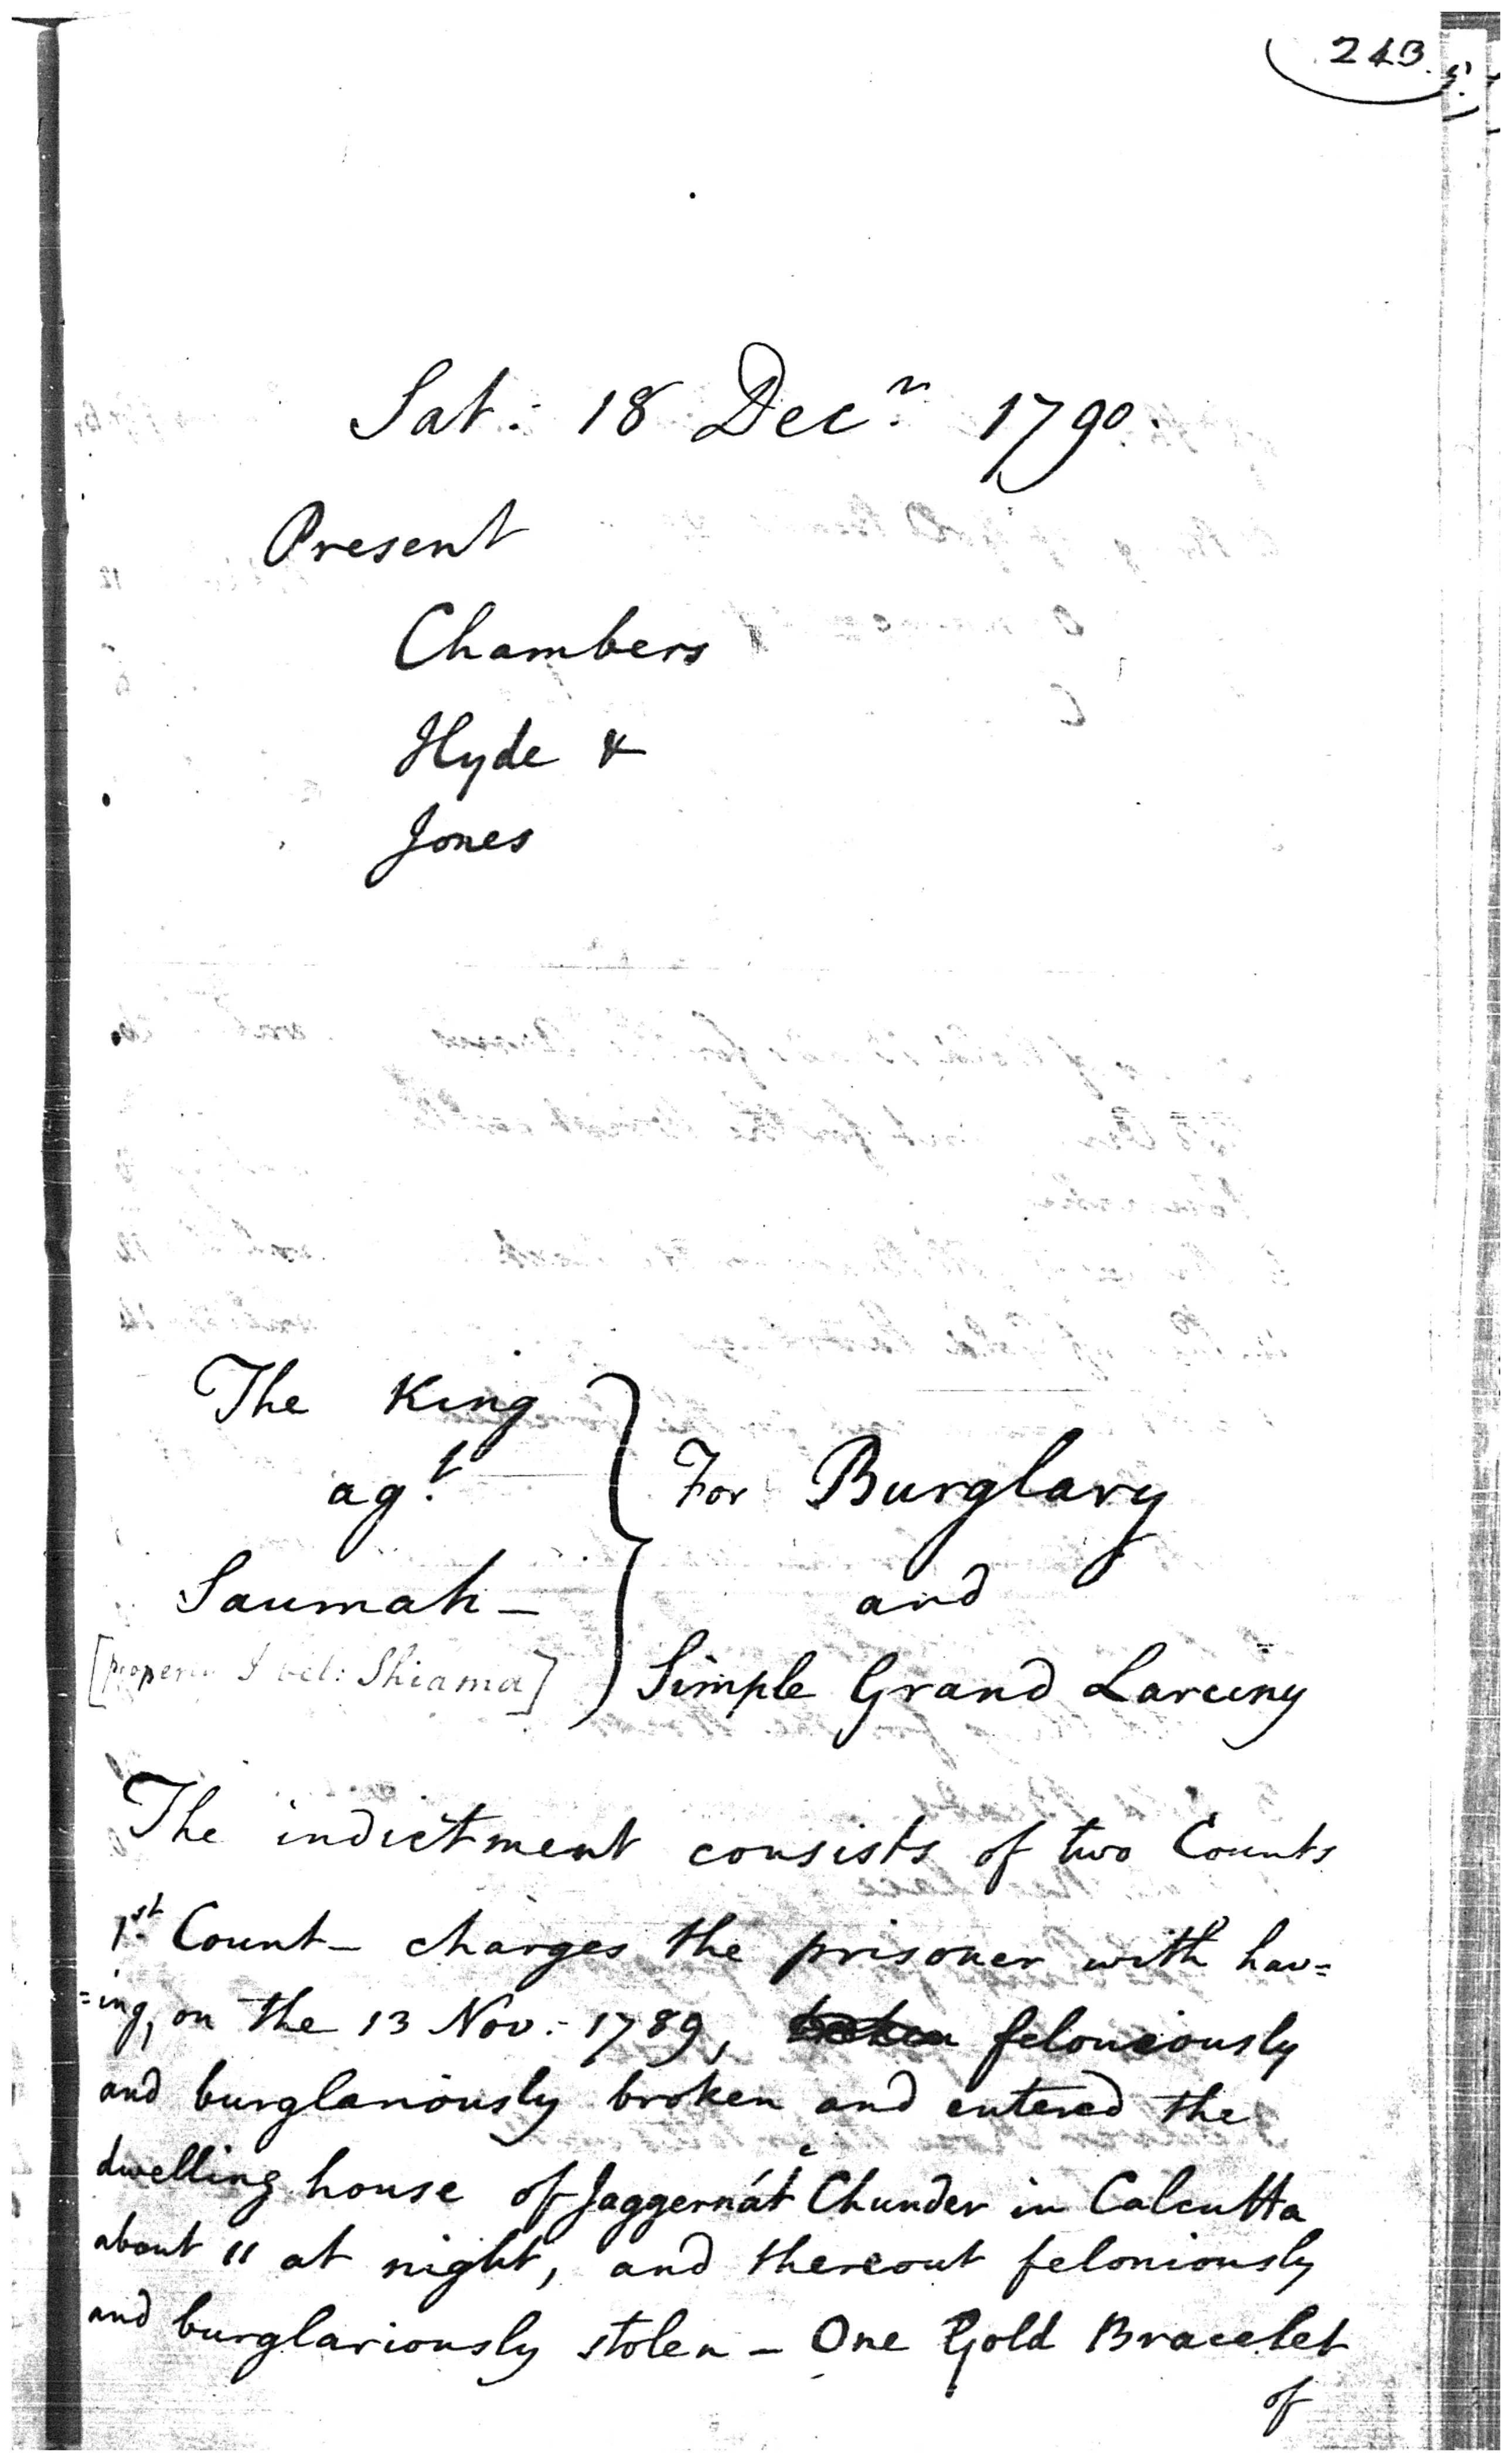 243.
Sat: 18 Decr. 1790.
Present
Chambers
Hyde &
Jones
The King
agt.
Saumah —
[properly I bel: Shiama]
For Burglary
and
Simple Grand Larceny
The indictment consists of two Counts
1st. Count — charges the prisoner with hav=
=ing, on the 13 Nov: 1789, broken feloniously
and burglariously broken and entered the
dwelling house of Jaggernát Chunder in Calcutta
about 11 at night, and thereout feloniously
and burglariously stolen — One Gold Bracelet
of